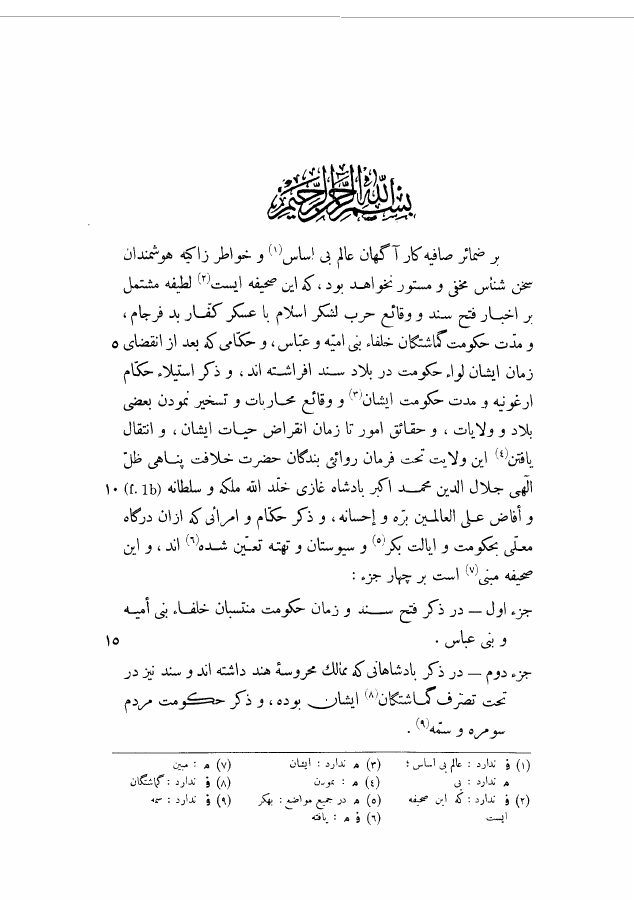 بسم الله الرحمن الرحیم
بر ضمائر صافیه کار آگهان عالم بی اساس(۱) و خواطر زاکیه هوشمندان
سخن شناس مخفی و مستور نخواهد بود، که این صحیفه ایست(۲) لطیفه مشتمل
بر اخبار فتح سند و وقائع حرب لشکر اسلام با عسکر کفّار بد فرجام،
و مدّت حکومت گماشتگان خلفاء بنی امیّه و عبّاس، و حکّامی که بعد از انقضای ٥
زمان ایشان لواء حکومت در بلاد سند افراشته اند، و ذکر استیلاء حکّام
ارغونیه و مدت حکومت ایشان(۳) و وقائع محاربات و تسخیر نمودن بعضی
بلاد و ولایات، و حقائق امور تا زمان انقراض حیات ایشان، و انتقال
یافتن(٤) این ولایت تحت فرمان روائی بندگان حضرت خلافت پناهی ظلّ
الٓهی جلال الدین محمد اکبر بادشاه غازی خلّد الله ملکه و سلطانه (f. 1b) ۱۰
و أفاض علی العالمین برّه و إحسانه، و ذکر حکّام و امرائی که ازان درگاه
معلّی بحکومت و ایالت بکر(٥) و سیوستان و تهته تعیّن شده(٦) اند، و این
صحیفه مبنی(۷) است بر چهار جزء:
جزء اول — در ذکر فتح سند و زمان حکومت منتسبان خلفاء بنی أمیه
و بنی عباس. ۱٥
جزء دوم — در ذکر بادشاهانی که ممالک محروسۀ هند داشته اند و سند نیز در
تحت تصرّف گماشتگان(۸) ایشان بوده، و ذکر حکومت مردم
سومره و سمّه(۹).
(۱) ف ندارد: عالم بی اساس؛
م ندارد: بی
(۲) ف ندارد: که این صحیفه
ایست
(۳) م ندارد: ایشان
(٤) م: نمودن
(٥) م در جمیع مواضع: بهکر
(٦) ف م: یافته
(۷) م: مبین
(۸) ف ندارد: گماشتگان
(۹) ف ندارد: سمه